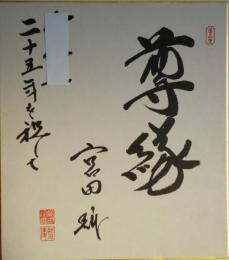 尊縁
二十五年を祝して
宮田